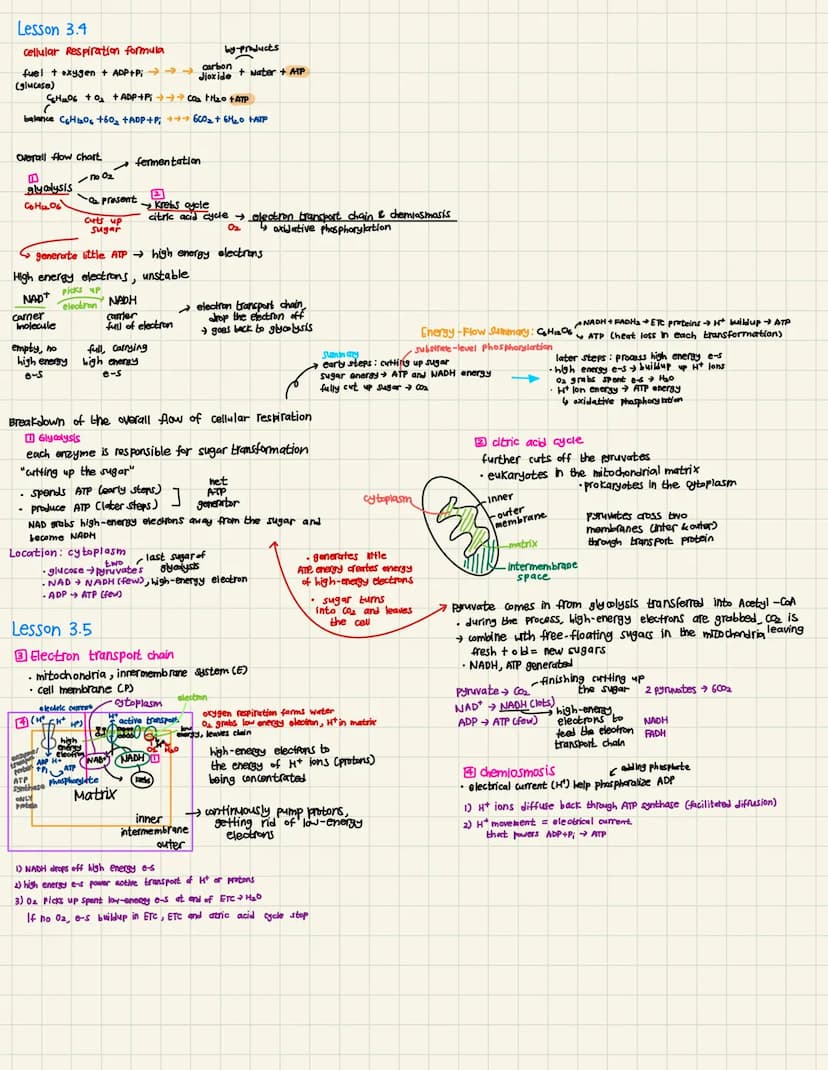 Lesson 3.4
cellular Respiration formula
by-products
fuel + oxygen + ADP+Pi → → → carbon dioxide + water + ATP
(glucose)
C6H12O6 + O2 + ADP+Pi → → → CO2 + H2O + ATP
balance C6H12O6 + 6O2 + ADP+Pi → → → 6CO2 + 6H2O + ATP
overall flow chart
no O2 → fermentation
1
glycolysis
O2 present
2
→ Krebs cycle
C6H12O6
citric acid cycle → electron transport chain & chemiosmosis
cuts up sugar
O2
↳ oxidative phosphorylation
↳ generate little ATP → high energy electrons
High energy electrons, unstable
NAD+ picks up electron NADH
carrier molecule
carrier full of electron
→ electron transport chain,
drop the electron off
→ goes back to glycolysis
empty, no high energy e-s
full, carrying high energy e-s
Energy-Flow Summary: C6H12O6
→ NADH + FADH2 → ETC proteins → H+ buildup → ATP
↳ ATP (heat loss in each transformation)
substrate-level phosphorylation
summary
early steps: cutting up sugar
sugar energy → ATP and NADH energy
fully cut up sugar → CO2
later steps: process high energy e-s
• high energy e-s → buildup up H+ ions
O2 grabs spent e-s → H2O
• H+ ion energy → ATP energy
↳ oxidative phosphorylation
Breakdown of the overall flow of cellular respiration
1 Glycolysis
each enzyme is responsible for sugar transformation
"cutting up the sugar"
• spends ATP (early steps)
• produce ATP (later steps)
net ATP generator
NAD grabs high-energy electrons away from the sugar and
become NADH
Location: cytoplasm
• glucose → two pyruvates
last sugar of glycolysis
• NAD → NADH (few), high-energy electron
• ADP → ATP (few)
2 citric acid cycle
further cuts off the pyruvates
• eukaryotes in the mitochondrial matrix
• prokaryotes in the cytoplasm
cytoplasm
inner
outer
membrane
matrix
intermembrane space
pyruvates cross two
membranes (inter & outer)
through transport protein
• generates little
ATP, energy creates energy
of high-energy electrons
• sugar turns
into CO2 and leaves
the cell
pyruvate comes in from glycolysis transferred into Acetyl-CoA
• during the process, high-energy electrons are grabbed, CO2 is leaving
→ combine with free-floating sugars in the mitochondria
fresh + old = new sugars
• NADH, ATP generated
pyruvate → CO2
finishing cutting up the sugar
2 pyruvates → 6CO2
NAD+ → NADH (lots)
high-energy electrons to feed the electron transport chain
NADH
FADH
ADP → ATP (few)
Lesson 3.5
3 Electron transport chain
• mitochondria, innermembrane system (E)
• cell membrane (P)
cytoplasm
electron
electric current
4
(H+ H+ H+)
H+
active transport
oxygen respiration forms water
O2 grabs low energy electron, H+ in matrix
low energy, leaves chain
high energy electron
O2
H2O
NAD+
NADH
1
ADP H+
+Pi
ATP
phosphorylate
ATP synthase
ONLY protein
Matrix
inner
intermembrane
outer
high-energy electrons to
the energy of H+ ions (protons)
being concentrated
→ continuously pump protons,
getting rid of low-energy
electrons
4 chemiosmosis
adding phosphate
• electrical current (H+) help phosphoralize ADP
1) H+ ions diffuse back through ATP synthase (facilitated diffusion)
2) H+ movement = electrical current
that powers ADP+Pi → ATP
1) NADH drops off high energy e-s
2) high energy e-s power active transport of H+ or protons
3) O2 picks up spent low-energy e-s at end of ETC → H2O
If no O2, e-s buildup in ETC, ETC and citric acid cycle stop